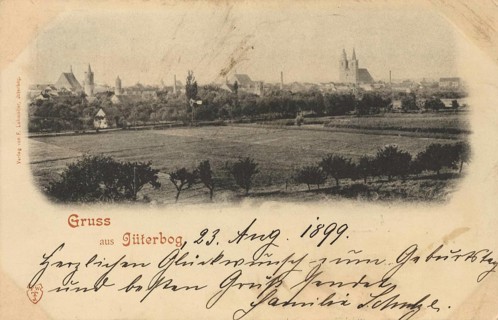 Gruss
aus Jüterbog, 23. Aug. 1899.
Herzlichen Glückwunsch zum Geburtstag
und besten Gruß sendet
Familie Schulze.
Verlag von
Jüterbog.